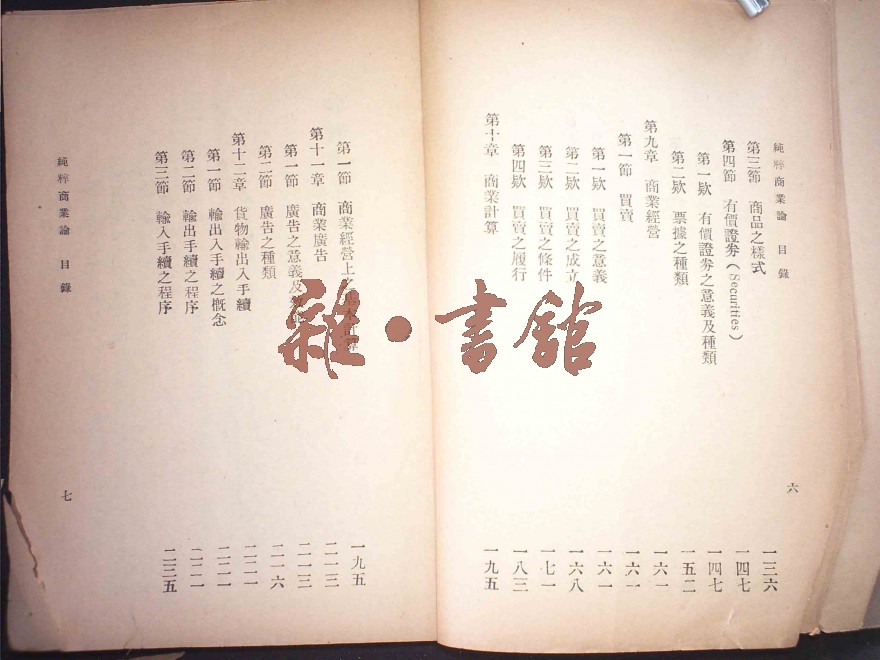 純粹商業論 目錄 六
第三節 商品之樣式 一三六
第四節 有價證券(Securities) 一四七
第一欵 有價證券之意義及種類 一四七
第二欵 票據之種類 一五二
第九章 商業經營 一六一
第一節 買賣 一六一
第一欵 買賣之意義 一六一
第二欵 買賣之成立 一六八
第三欵 買賣之條件 一七一
第四欵 買賣之履行 一八三
第十章 商業計算 一九五
第一節 商業經營上之本計算 一九五
第十一章 商業廣告 二一三
第一節 廣告之意義及 二一三
第二節 廣告之種類 二一六
第十二章 貨物輸出入手續 二二一
第一節 輸出入手續之概念 二二一
第二節 輸出手續之程序 二二一
第三節 輸入手續之程序 二三五
純粹商業論 目錄 七
雜·書館